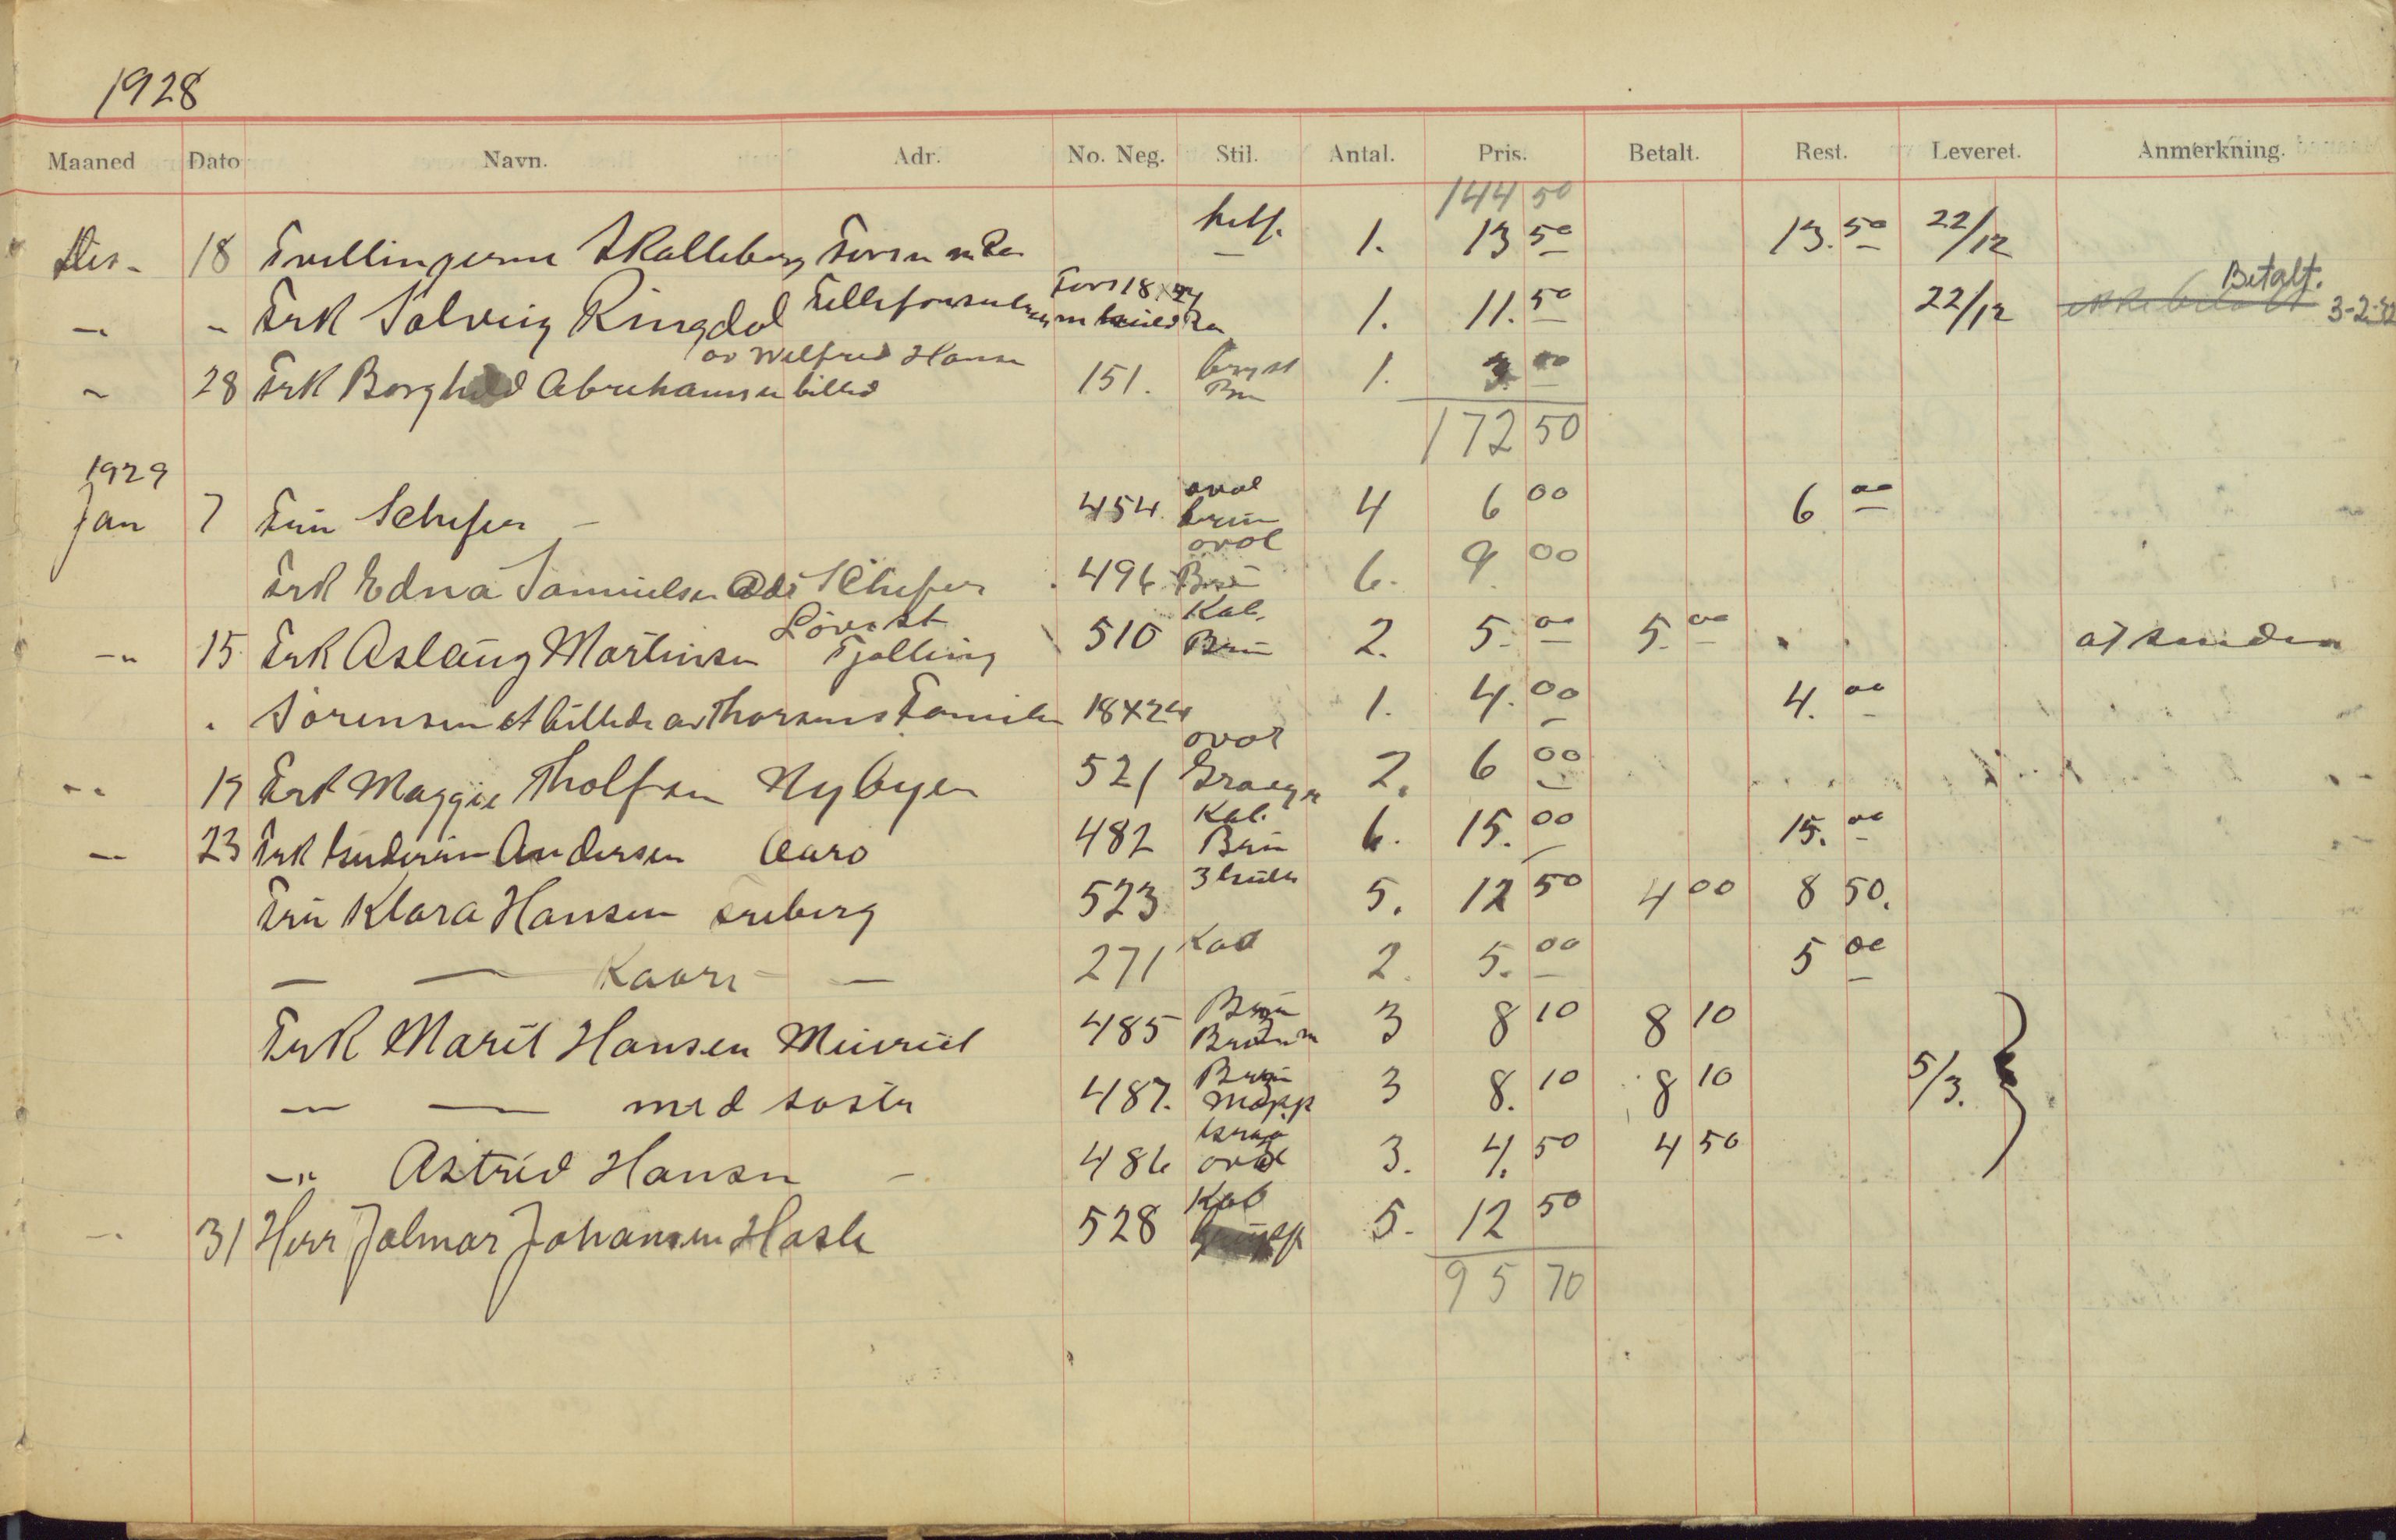 1928
Maaned Dato Navn. Adr. No. Neg. Stil. Antal. Pris. Betalt. Rest. Leveret. Anmerkning.
144 50
Des - 18 Tvillingerne Skalleberg helf. 1. 13 50 13. 50 22/12
Fors 18x24
— - Frk Solveig Ringdal 1. 11. 50 22/12 Betalt. 3-2-32
av Wilfred Hansen
- 28 Frk Borghild Abrahamsen billed 151. bryst Brun 1. 3 00
172 50
1929
Jan 7 Fru Schefer - 454. oval brun 4 6 00 6 00
Frk Edna Samuelsen Schefer 496 oval Brun 6. 9. 00
-" 15 Frk Aslaug Martinsen Tjølling 510 Kab. Brun 2. 5. 00 5. 00 afsendes
. Sorensen et billede av Thorsens Familie 18x24 1. 4. 00 4. 00
" 19 Frk Maggie Tholfsen Nybyen 521 oval 2. 6 00
— 23 Frk Andersen Aarø 482 Kab. Brun 6. 15. 00 15. 00
Fru Klara Hansen Freberg 523 5. 12 50 4 00 8 50.
— — Kaare — 271 Kab 2. 5. 00 5 00
Frk Marit Hansen 485 Brun 3 8 10 8 10
— — med søster 487. Brun Mapp 3 8. 10 8 10 5/3.
-" Astrid Hansen - 486 oval 3. 4. 50 4 50
31 Herr Jalmar Johansen Hasle 528 Kab 5. 12 50
95 70